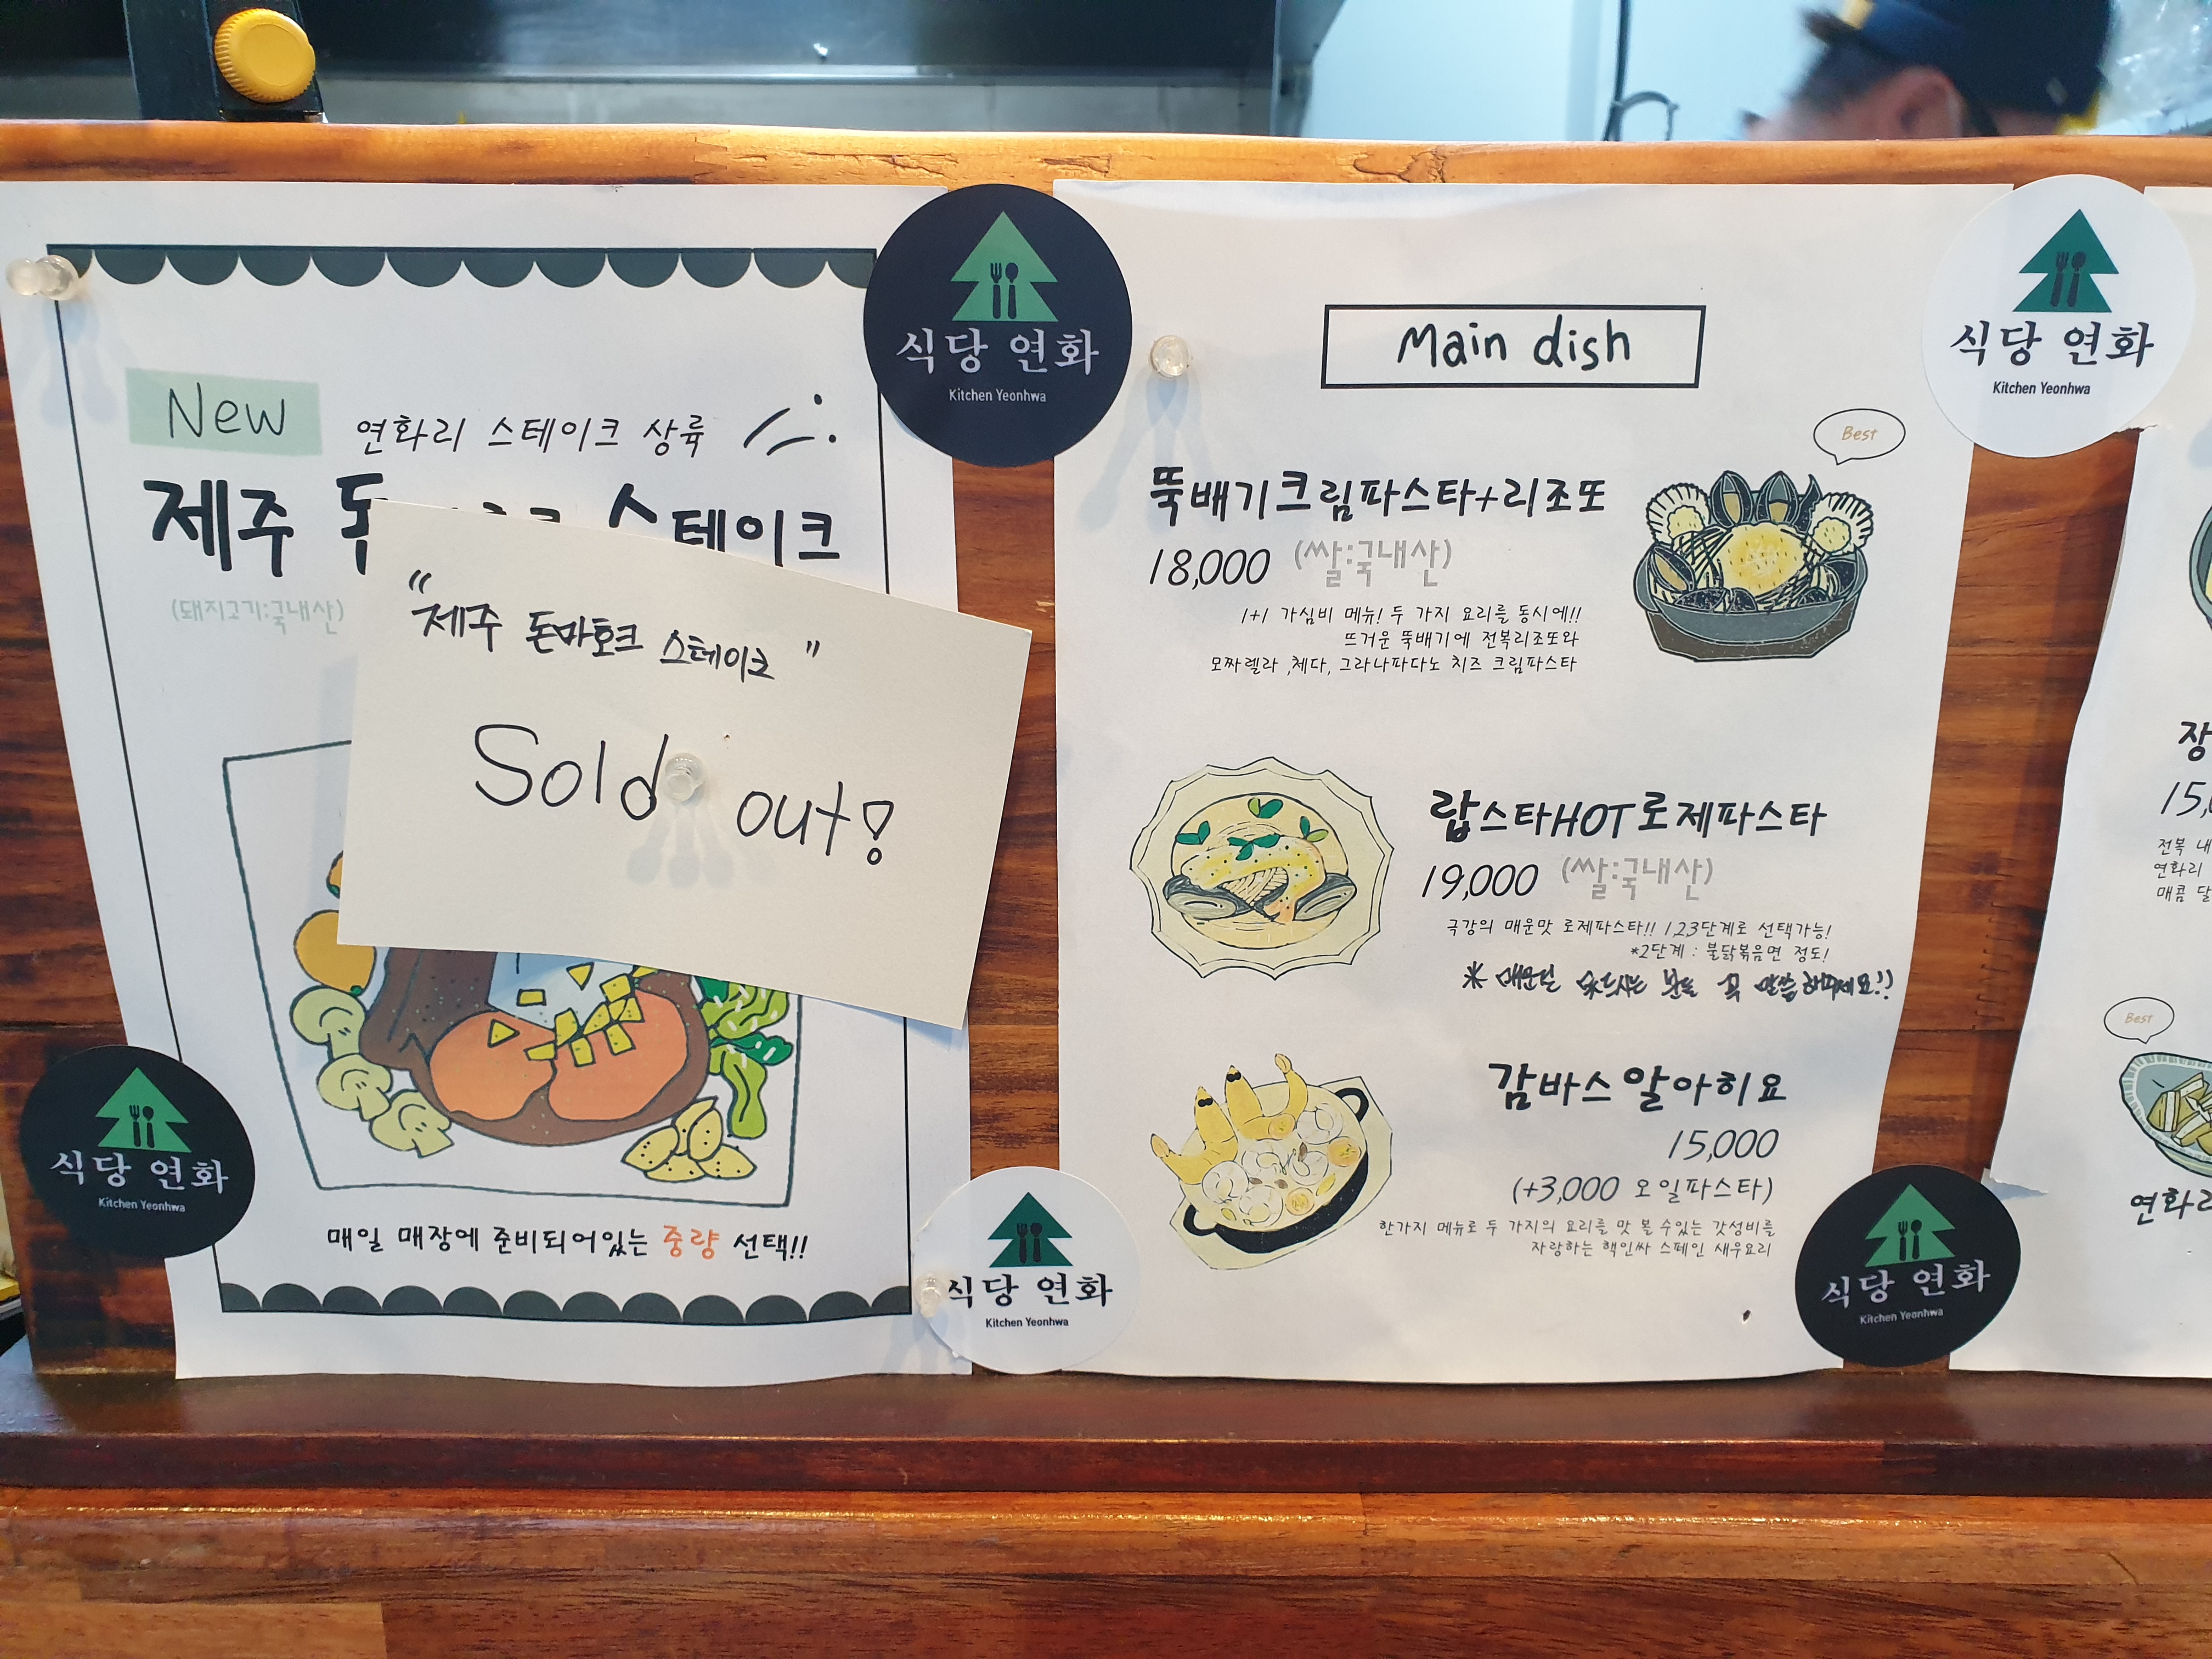 New
연화리 스테이크 상륙
제주 돈 스테이크
(돼지고기:국내산)
"제주 돈마호크 스테이크"
Sold out!
매일 매장에 준비되어있는 중량 선택!!
식당 연화
Kitchen Yeonhwa
식당 연화
Kitchen Yeonhwa
식당 연화
Kitchen Yeonhwa
Main dish
Best
뚝배기크림파스타+리조또
18,000 (쌀:국내산)
1+1 가심비 메뉴! 두 가지 요리를 동시에!!
뜨거운 뚝배기에 전복리조또와
모짜렐라 ,체다, 그라나파다노 치즈 크림파스타
랍스타HOT로제파스타
19,000 (쌀:국내산)
극강의 매운맛 로제파스타!! 1,2,3단계로 선택가능!
*2단계 : 불닭볶음면 정도!
※ 매운걸 못드시는 분들 꼭 말씀해주세요!!
감바스알아히요
15,000
(+3,000 오일파스타)
한가지 메뉴로 두 가지의 요리를 맛 볼 수있는 갓성비를
자랑하는 핵인싸 스페인 새우요리
식당 연화
Kitchen Yeonhwa
식당 연화
Kitchen Yeonhwa
장
15,
전복 내
연화리
매콤 달
Best
연화리